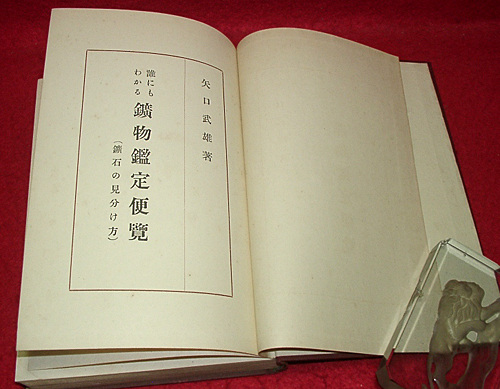 矢口武雄著
誰にも
わかる
鑛物鑑定便覽
(鑛石の見分け方)